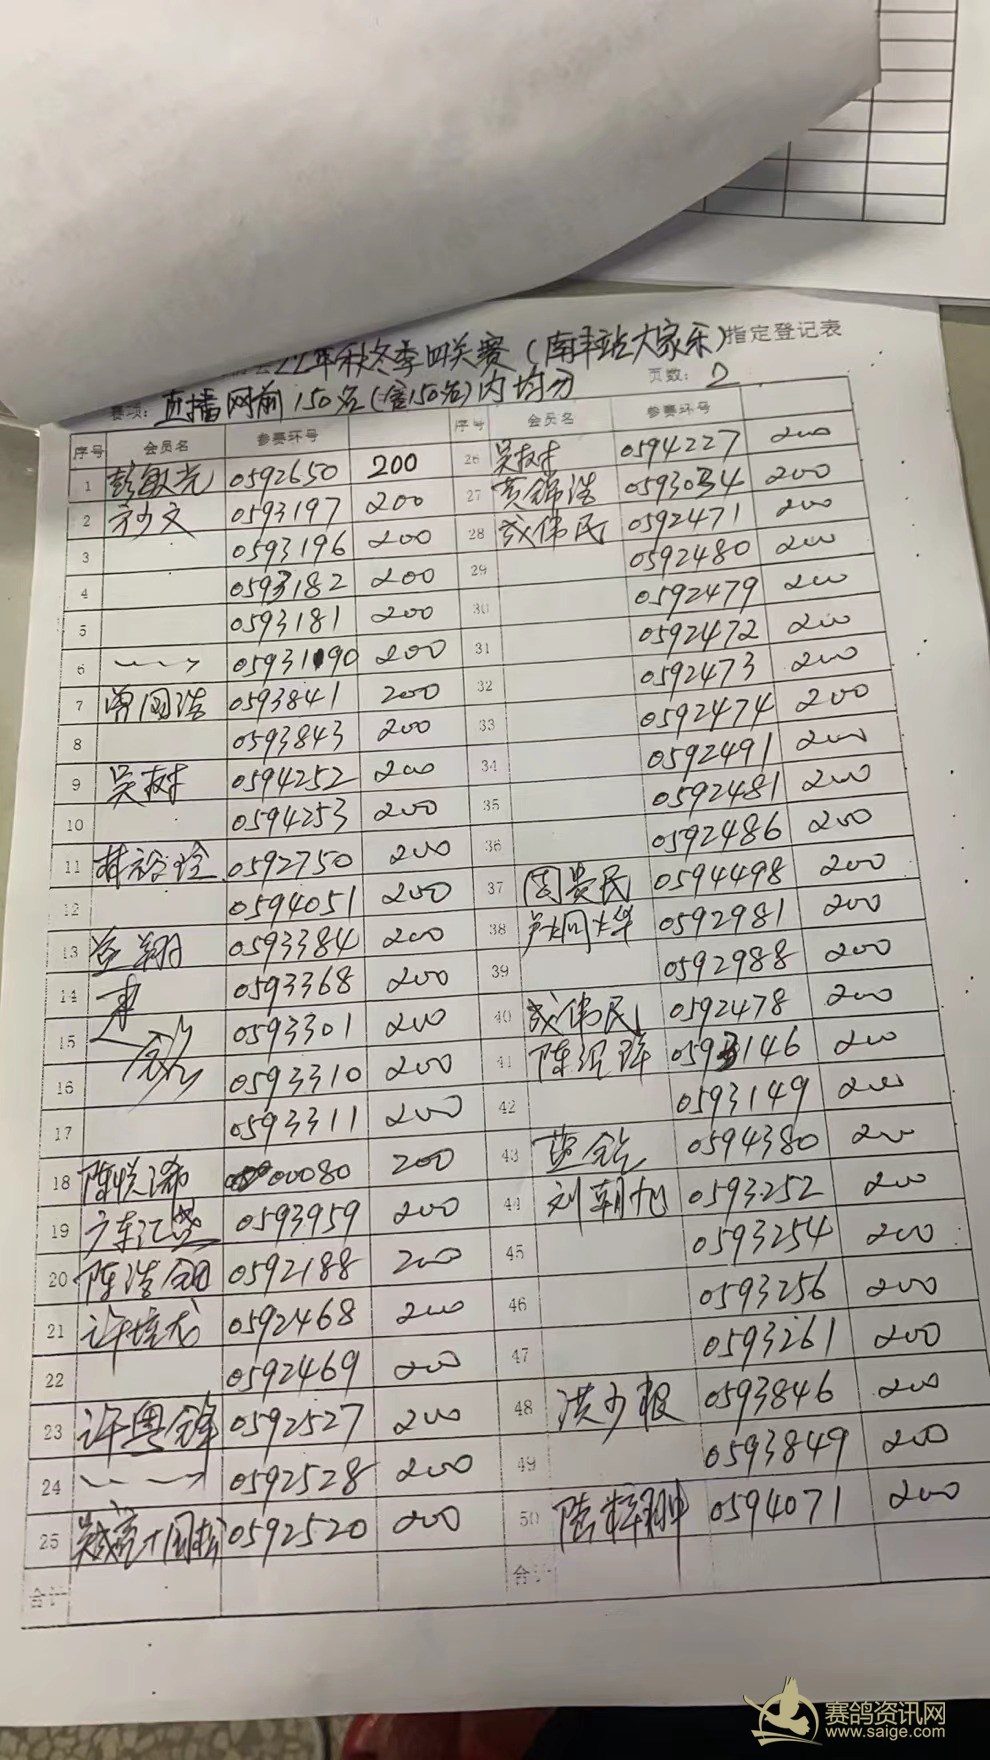 22年秋冬季四关赛(南丰站大家乐)指定登记表
赛项: 直播网前150名(含150名)内均分 页数: 2
序号 会员名 参赛环号 序号 会员名 参赛环号
1 彭敏光 0592650 200 26 吴树 0594227 200
2 方少文 0593197 200 27 黄锦浩 0593034 200
3 0593196 200 28 成伟民 0592471 200
4 0593182 200 29 0592480 200
5 0593181 200 30 0592479 200
6 0593190 200 31 0592472 200
7 曾国浩 0593841 200 32 0592473 200
8 0593843 200 33 0592474 200
9 吴树 0594252 200 34 0592491 200
10 0594253 200 35 0592481 200
11 林裕 0592750 200 36 0592486 200
12 0594051 200 37 周景民 0594498 200
13 翔 0593384 200 38 大华 0592981 200
14 0593368 200 39 0592988 200
15 0593301 200 40 成伟民 0592478 200
16 0593310 200 41 陈 0593146 200
17 0593311 200 42 0593149 200
18 陈悦 00080 200 43 0594380 200
19 广东江 0593959 200 44 刘朝旭 0593252 200
20 陈浩 0592188 200 45 0593254 200
21 许培龙 0592468 200 46 0593256 200
22 0592469 200 47 0593261 200
23 许粤锋 0592527 200 48 洪少 0593846 200
24 0592528 200 49 0593849 200
25 0592520 200 50 0594071 200
合计 合计
赛鸽资讯网
www.saige.com